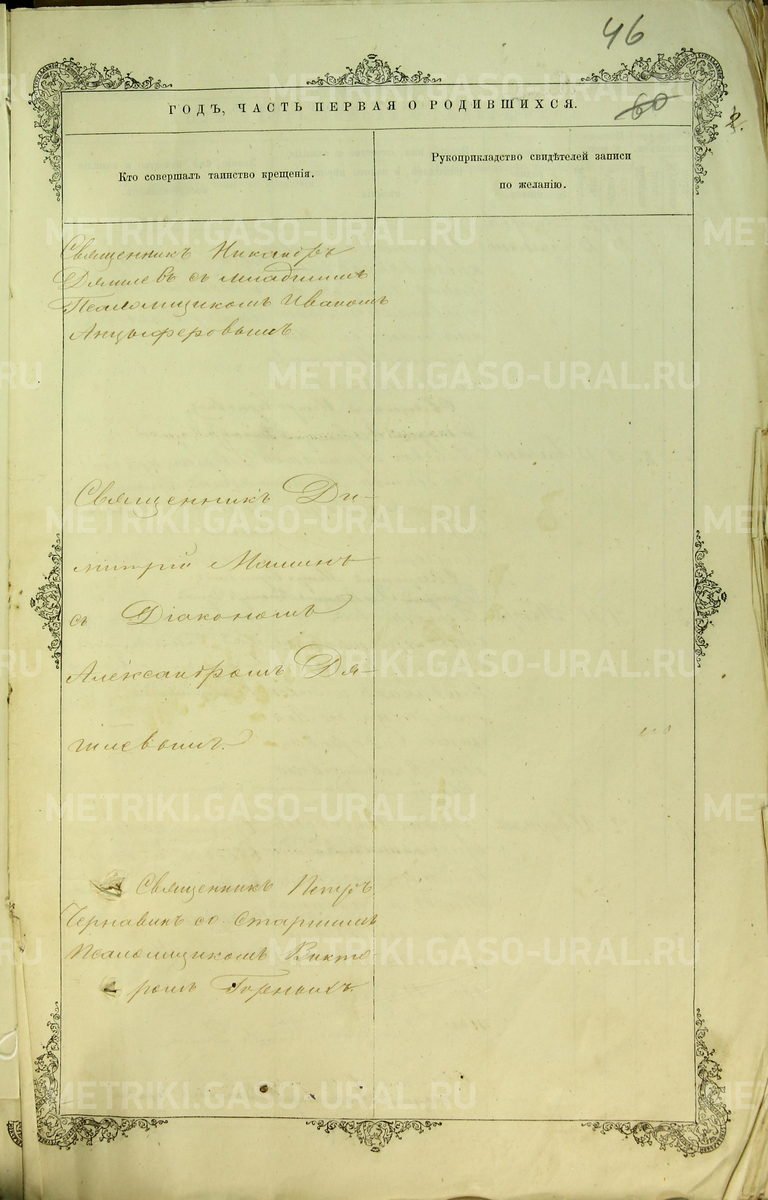 46
ГОДЪ, ЧАСТЬ ПЕРВАЯ О РОДИВШИХСЯ.
60
Кто совершалъ таинство крещенія.
Рукоприкладство свидѣтелей записи
по желанію.
Священникъ Никаноръ
съ младшимъ
Псаломщикомъ Иваномъ
Анцыферовымъ
Священникъ Ди-
митрій Маминъ
съ Діакономъ
Александромъ Дя-
гилевымъ.
Священникъ Петръ
Чернавинъ со Старшимъ
Псаломщикомъ Викто-
ромъ Горныхъ.
METRIKI.GASO-URAL.RU